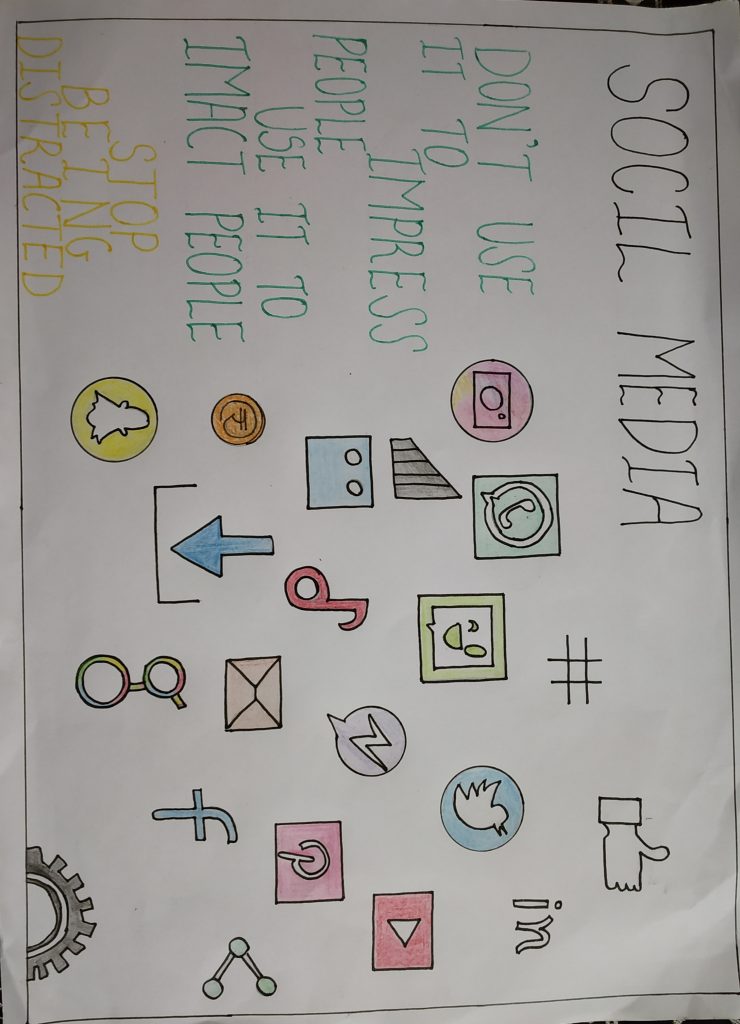 SOCIL MEDIA
DON'T USE
IT TO
IMPRESS
PEOPLE
USE IT TO
IMACT PEOPLE
STOP
BEING
DISTRACTED
#
in
f
₹